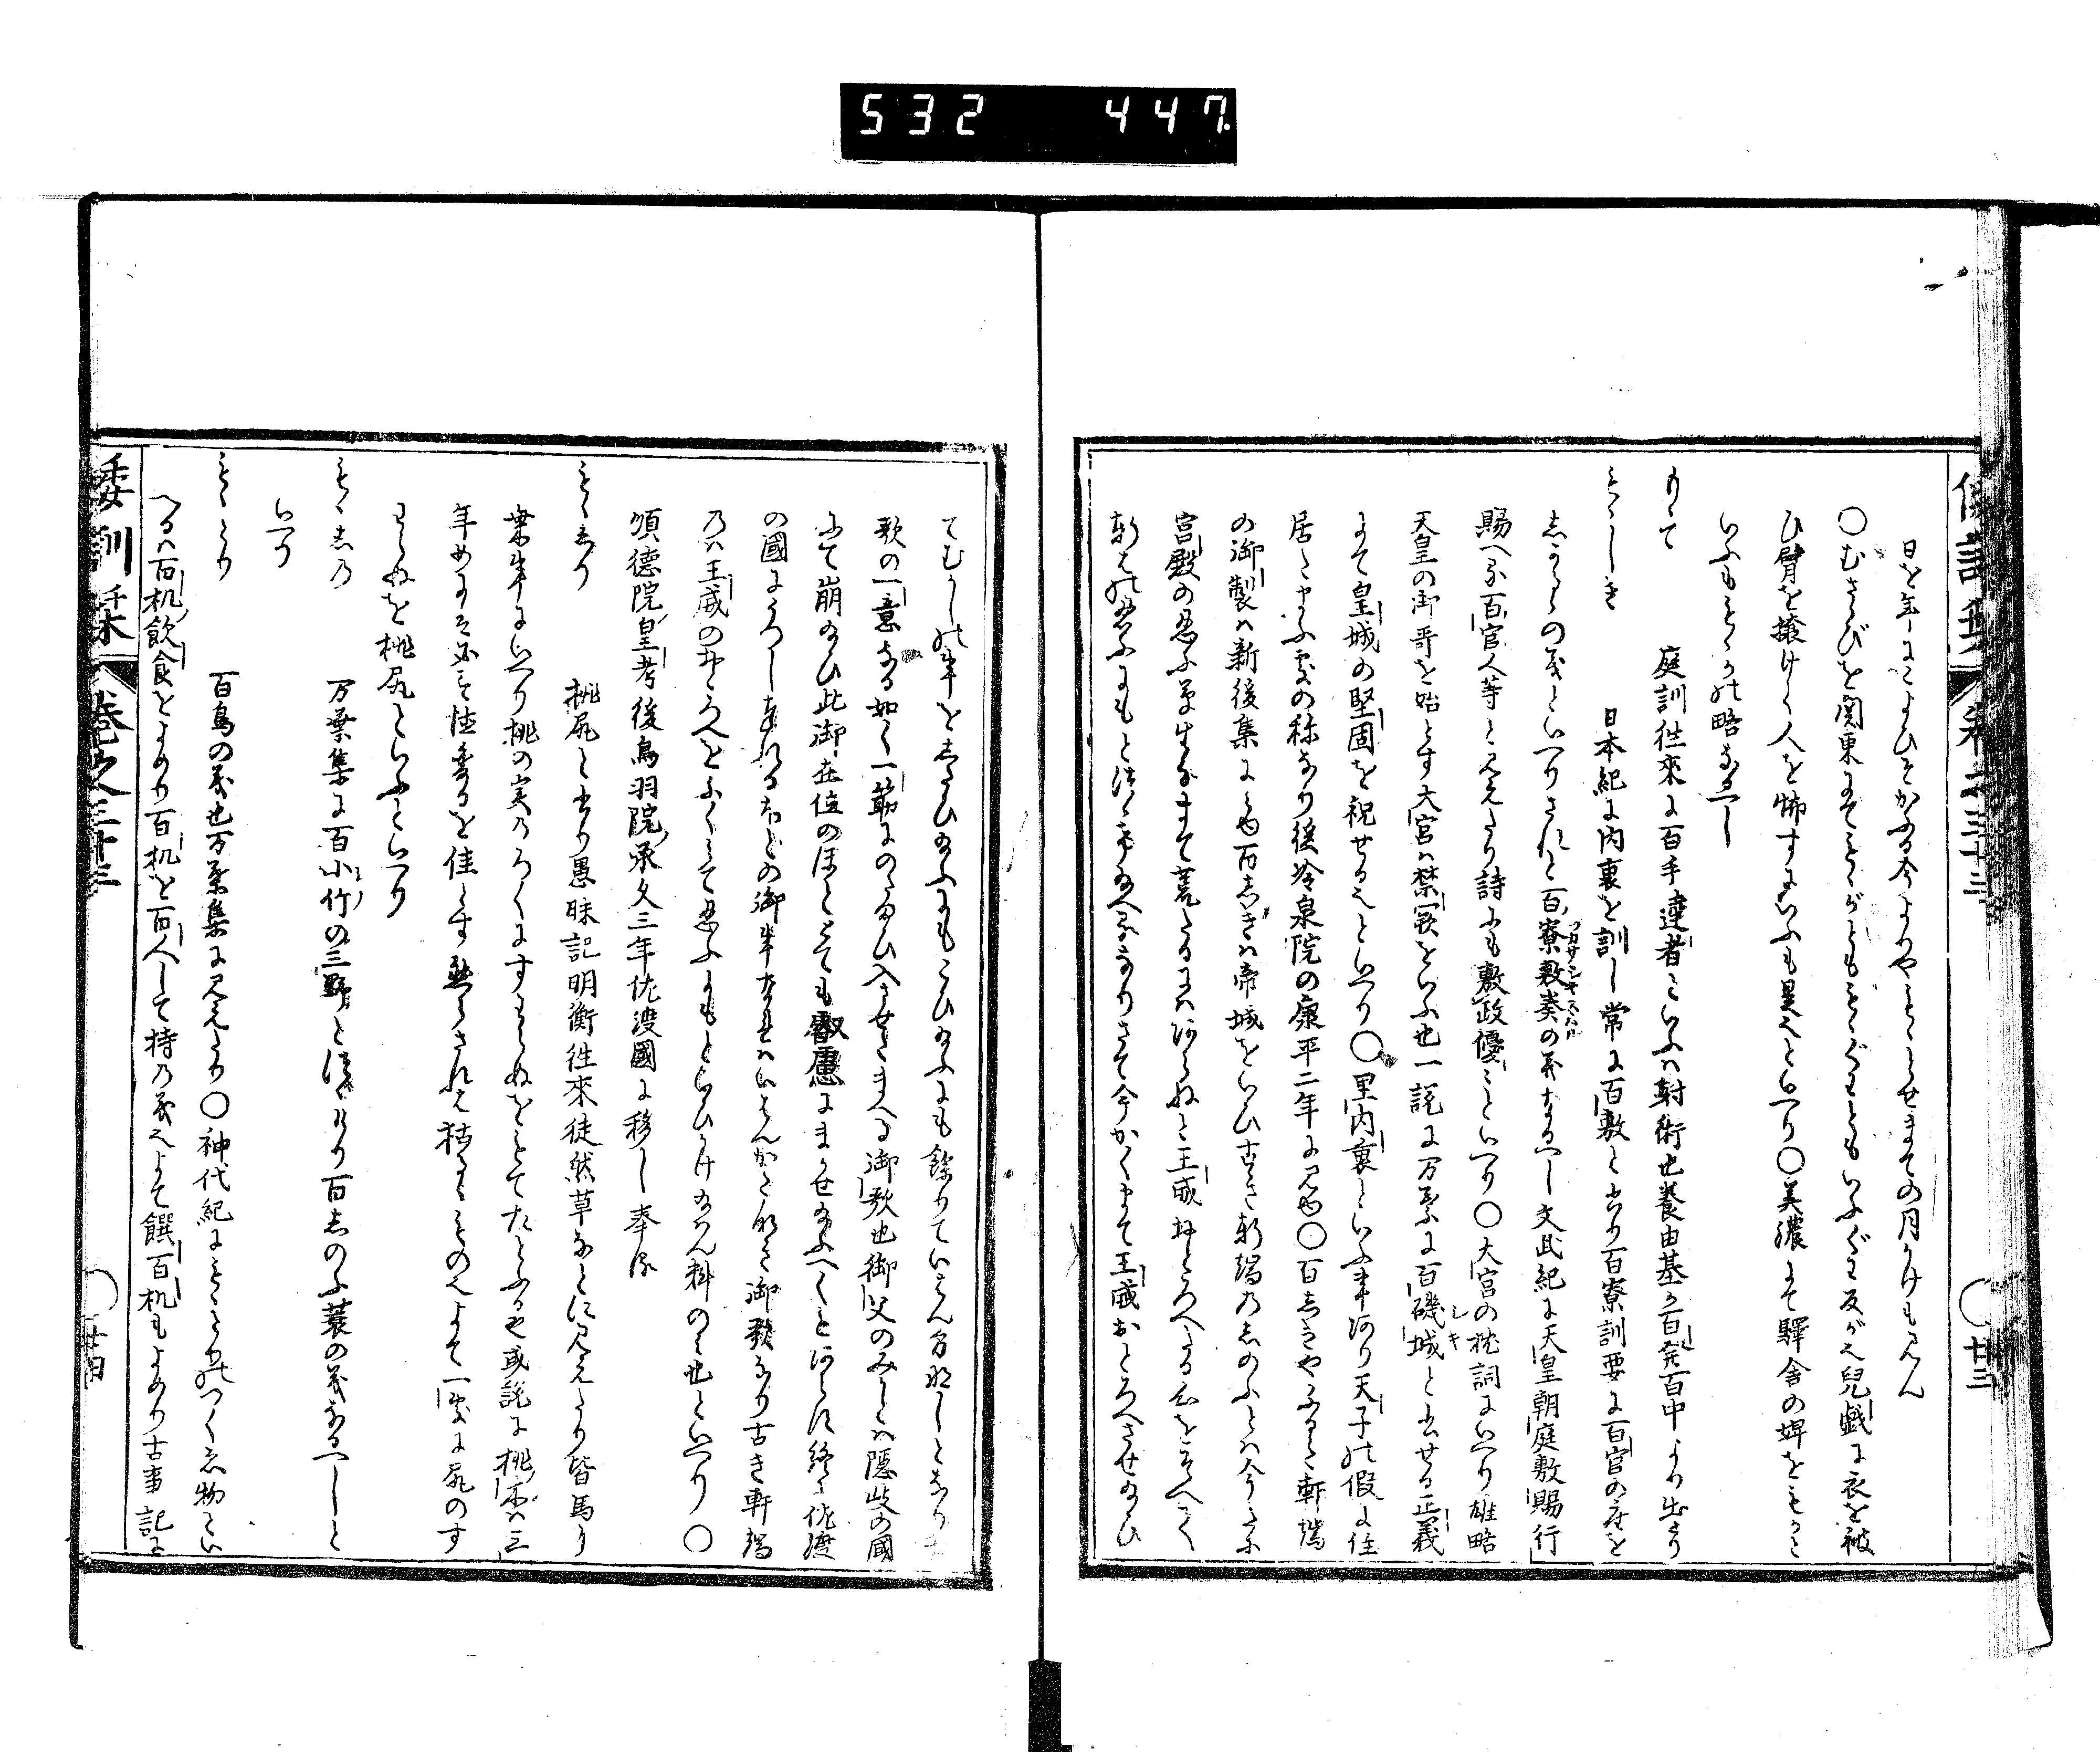 532 447
倭訓栞 巻之三十三 廿三
日を年にこよひそかふる今よりやもゝとせまての月かけも見ん
○むさゝびを関東にてもゝがとももゝぐわともいふぐわ反が也児戯に衣を被
ひ臂を掖けて人を怖すにいふも是也といへり○美濃にて驛舎の婢をもかと
いふももゝかの略なるへし
もゝて 庭訓徃來に百手達者といふハ射術也養由基か百発百中より出たり
もゝしき 日本紀に内裏を訓し常に百敷と書り百寮訓要に百官の座を
しかるの義といへりされと百寮敷奏の義なるへし文武紀に天皇朝庭敷賜行
賜へる百官人等と見えたり詩にも敷政優々といへり○大宮の枕詞にいへり雄略
天皇の御哥を始とす大宮ハ禁裏をいふ也一説に万葉に百磯城と書せる正義
にて皇城の堅固を祝せる也といへり○里内裏といふ事あり天子の假に住
居したまふ處の称なり後冷泉院の康平二年に見ゆ○百しきやふるき軒端
の御製ハ新後集に見ゆ百しきハ帝城をいひ古き軒端のしのふとハ今うさふ
宮殿の忍ふ草生るまて荒たるにハあらねと王威おとろへたる意をそへて
軒はの忍ふにもとつゝけ給へるなりさて今かくまて王威おとろへさせ給ひ
てむかしの事をしたひ給ふにもこひ給ふにも餘りていはん方なしとなり
歌の一意なる如く一筋にのたまひ入させたまへる御歌也御父のみとハ隠岐の國
にて崩給ひ此御在位のほとゝても叡慮にまかせ給ふへくもあらす終に佐渡
の國にうつし奉れるほとの御事なれハいはんかたなき御歌なり古き軒端
乃ハ王威のおとろへをふくみて忍ふにもといひかけ給ハん料のミ也といへり○
順徳院皇考後鳥羽院承久三年佐渡國に移し奉る
もゝしり 桃尻と書り愚昧記明衡徃來徒然草なとに見えたり皆馬り
葉事にいへり桃の実のろくにすわらぬをもてたとふる也或説に桃尓ハ三
年めにハ必す性変るを佳とす熟されハ枯るゝもの也よて一処に尻のす
わらぬを桃尻といふといへり
もゝしの 万葉集に百小竹の三野と續けり百しのふ蓑の義なるへしと
いへり
もゝとり 百鳥の義也万葉集に見えたり○神代紀にもゝとりのつくゑ物とい
へるハ百机飲食をよめり百机を百人して持の義也よて饌百机もよめり古事記に
倭訓栞 巻之三十三 廿四